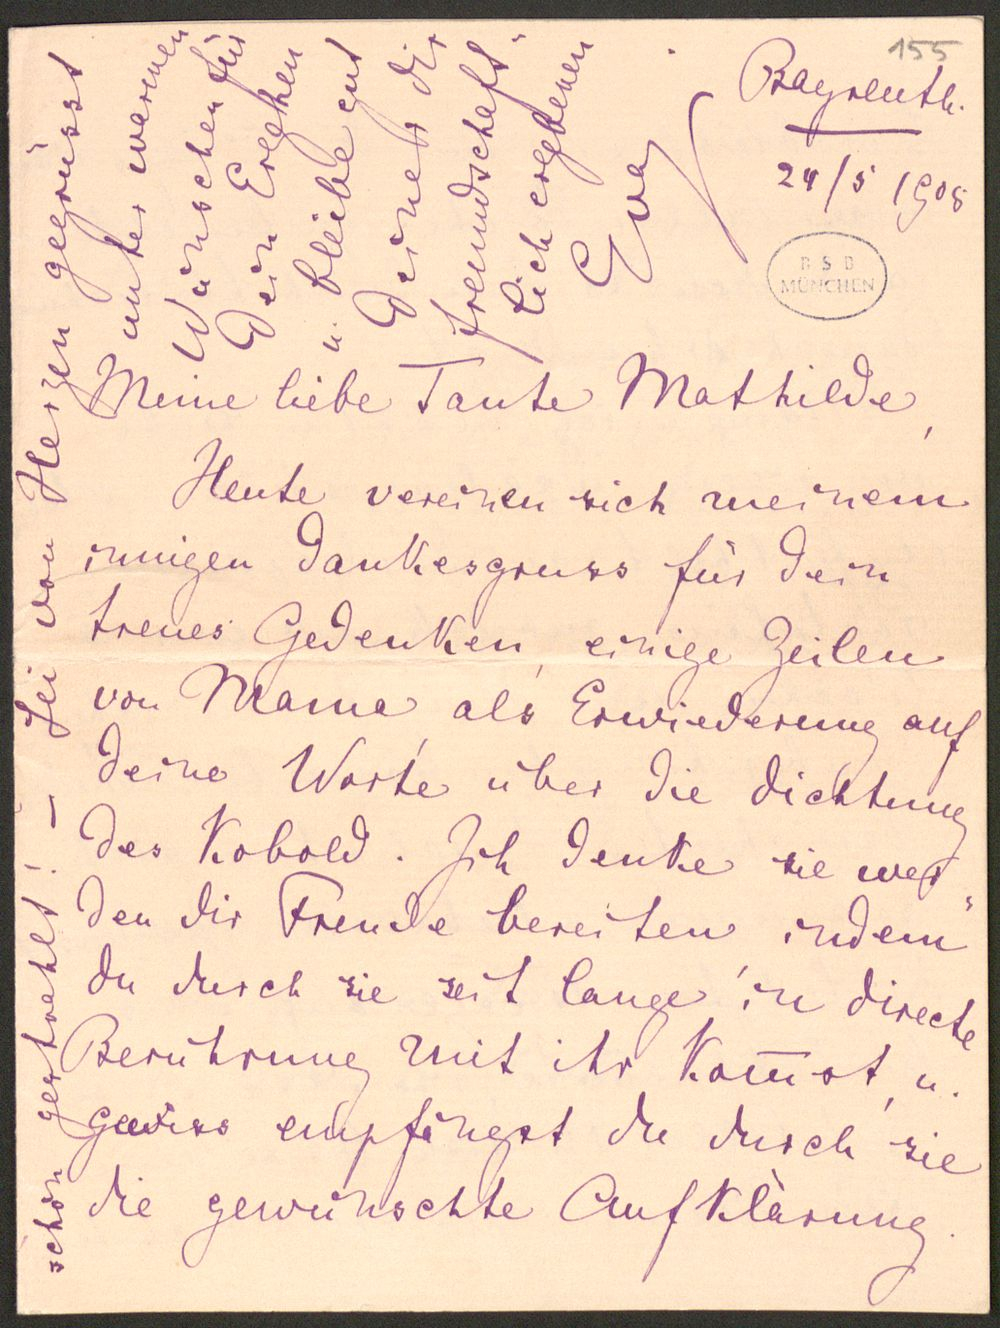 155
Bayreuth.
24/5 1908
BSB
MÜNCHEN
Meine liebe Tante Mathilde,
Heute vereinen sich meinem
innigen Dankesgruss für Dein
treues Gedenken, einige Zeilen
von Mama, als Erwiederung auf
Deine Worte über die Dichtung
des Kobold. Ich denke sie wer"
den dir Freude bereiten indem
du durch sie seit lange in directe
Berührung mit ihr Kom̅st, u.
gewiss empfängst du durch sie
die gewünschte Aufklärung.
schön gestrahlt! – Sei von Herzen gegrüsst
unter warmen
Wünschen für
Dein Ergehen
u. bleibe gut
Deiner dir
freundschaft"
lich ergebenen
Eva